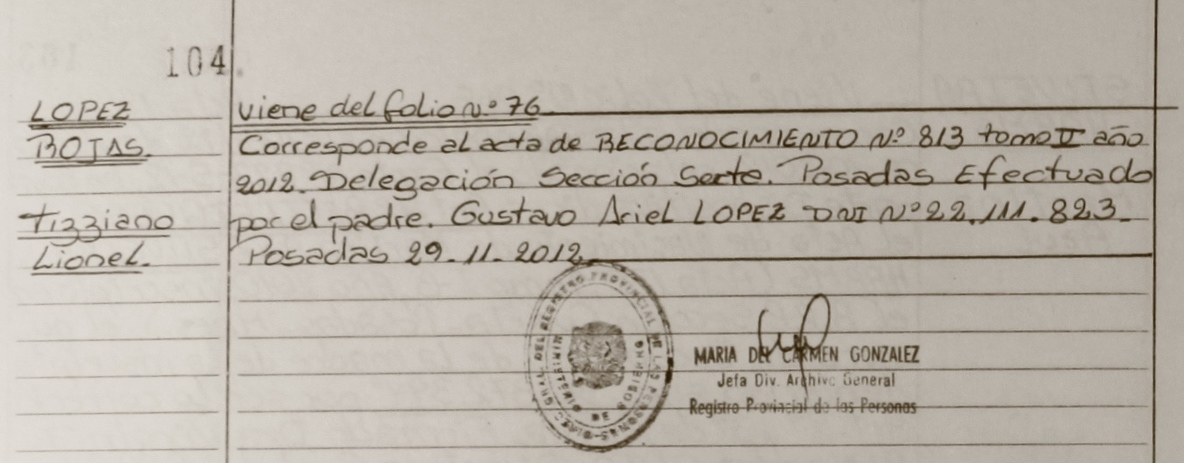 104.
LOPEZ
ROJAS
Tizziano
Lionel.
Viene del folio Nº 76
Corresponde al acta de RECONOCIMIENTO Nº 813 tomo II año
2012. Delegación Sección Serte. Posadas Efectuado
por el padre. Gustavo Ariel LOPEZ DNI Nº 22.111.823.
Posadas 29.11.2012
DIREC. GRAL. DEL REGISTRO PROVINCIAL DE LAS PERSONAS
MINISTERIO DE GOBIERNO
MARIA DEL CARMEN GONZALEZ
Jefa Div. Archivo General
Registro Provincial de las Personas